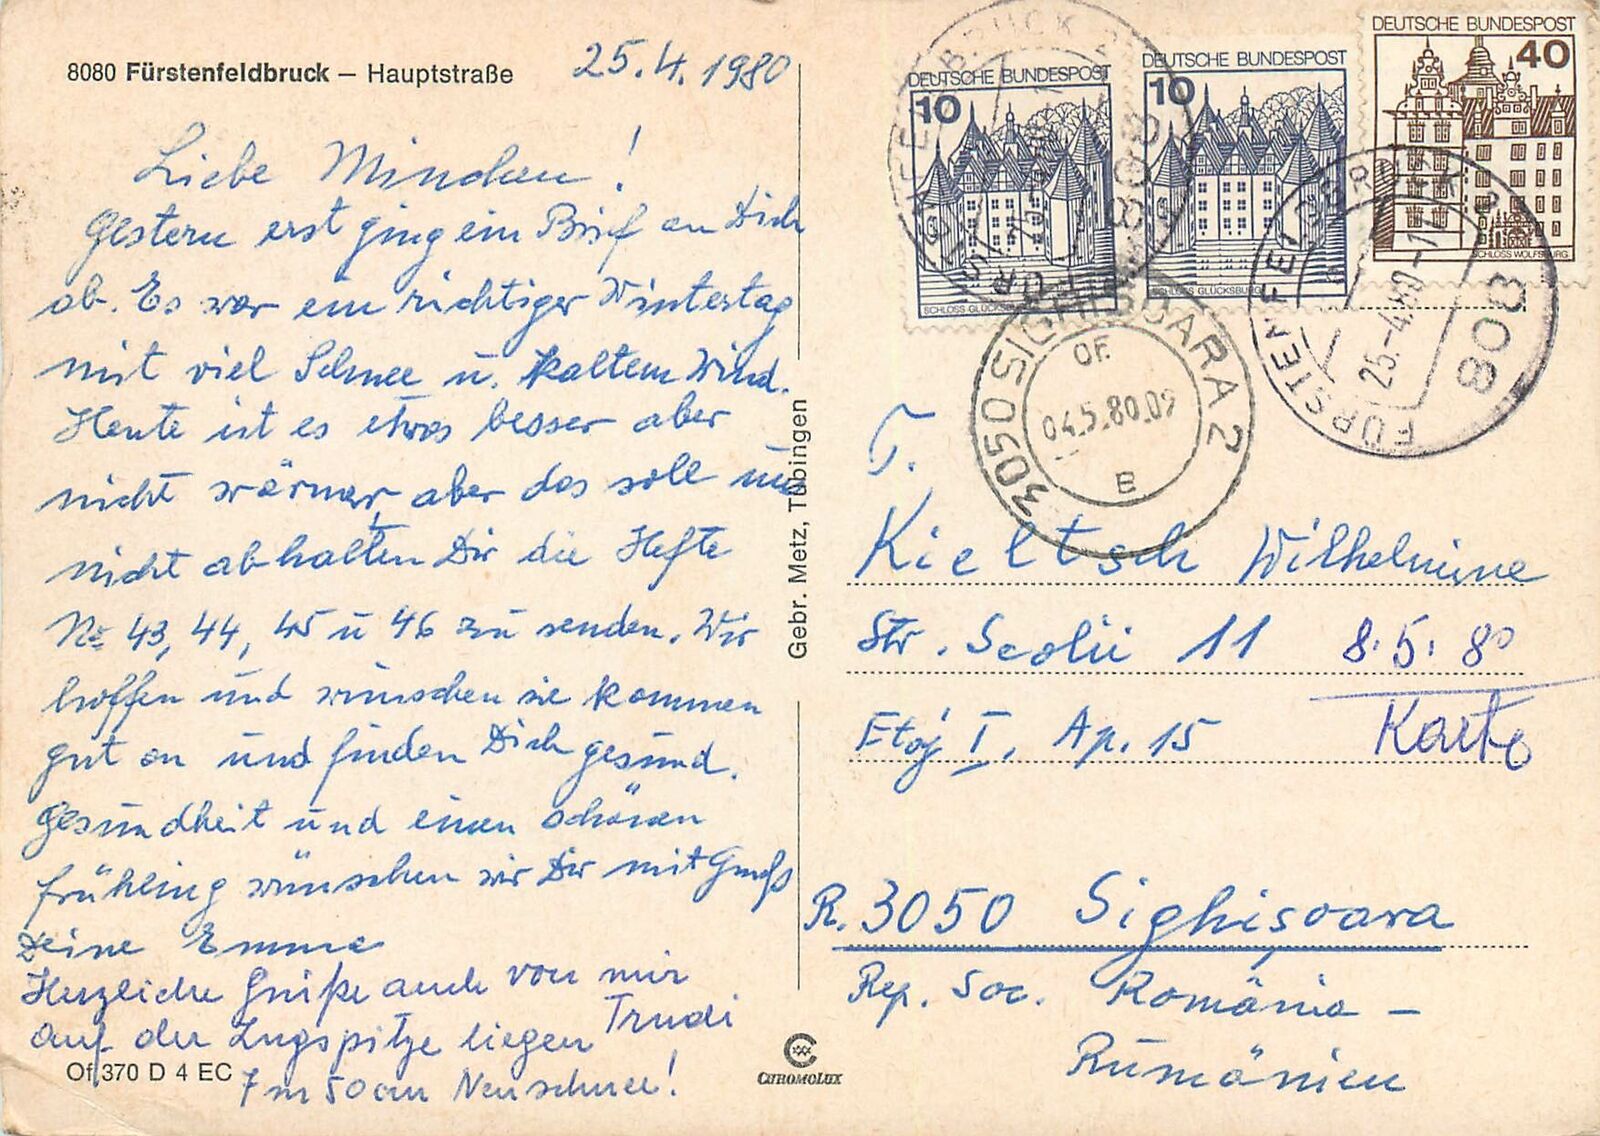 8080 Fürstenfeldbruck – Hauptstraße
25.4.1980
Liebe Minchen!
Gestern erst ging ein Brief an Dich
ab. Es war ein richtiger Wintertag
mit viel Schnee u. kaltem Wind.
Heute ist es etwas besser aber
nicht wärmer, aber das soll uns
nicht abhalten Dir die Hefte
No 43, 44, 45 u 46 zu senden. Wir
hoffen und wünschen sie kommen
gut an und finden Dich gesund.
Gesundheit und einen schönen
Frühling wünschen wir Dir mit Gruß
Deine Emma
Herzliche Grüße auch von mir
Trudi
auf der Zugspitze liegen
7 m 50 cm Neuschnee!
Of 370 D 4 EC
Gebr. Metz, Tübingen
CHROMOLUX
DEUTSCHE BUNDESPOST
10
SCHLOSS GLÜCKSBURG
DEUTSCHE BUNDESPOST
10
SCHLOSS GLÜCKSBURG
DEUTSCHE BUNDESPOST
40
SCHLOSS WOLFSBURG
FÜRSTENFELDBRUCK 2
8080
FÜRSTENFELDBRUCK 2
25.-4.80-17
808
3050 SIGHISOARA 2
OF.
04.5.80.09
B
T.
Kieltsch Wilhelmine
Str. Scolii 11
8.5.80
Etaj I, Ap. 15
Karte
R. 3050 Sighişoara
Rep. Soc. România –
Rumänien